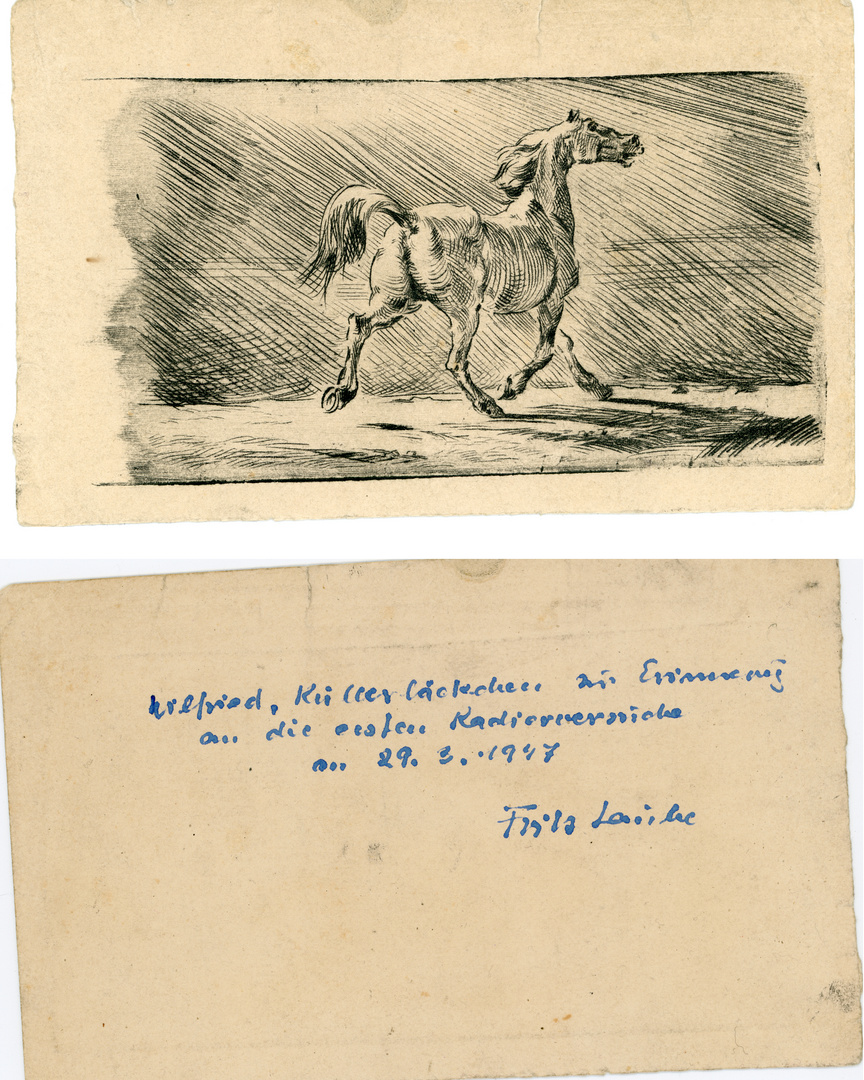 Wilfried Küllertäckchen zur Erinnerung
an die ersten Radierversuche
am 29. 3. 1947
Fritz Laube